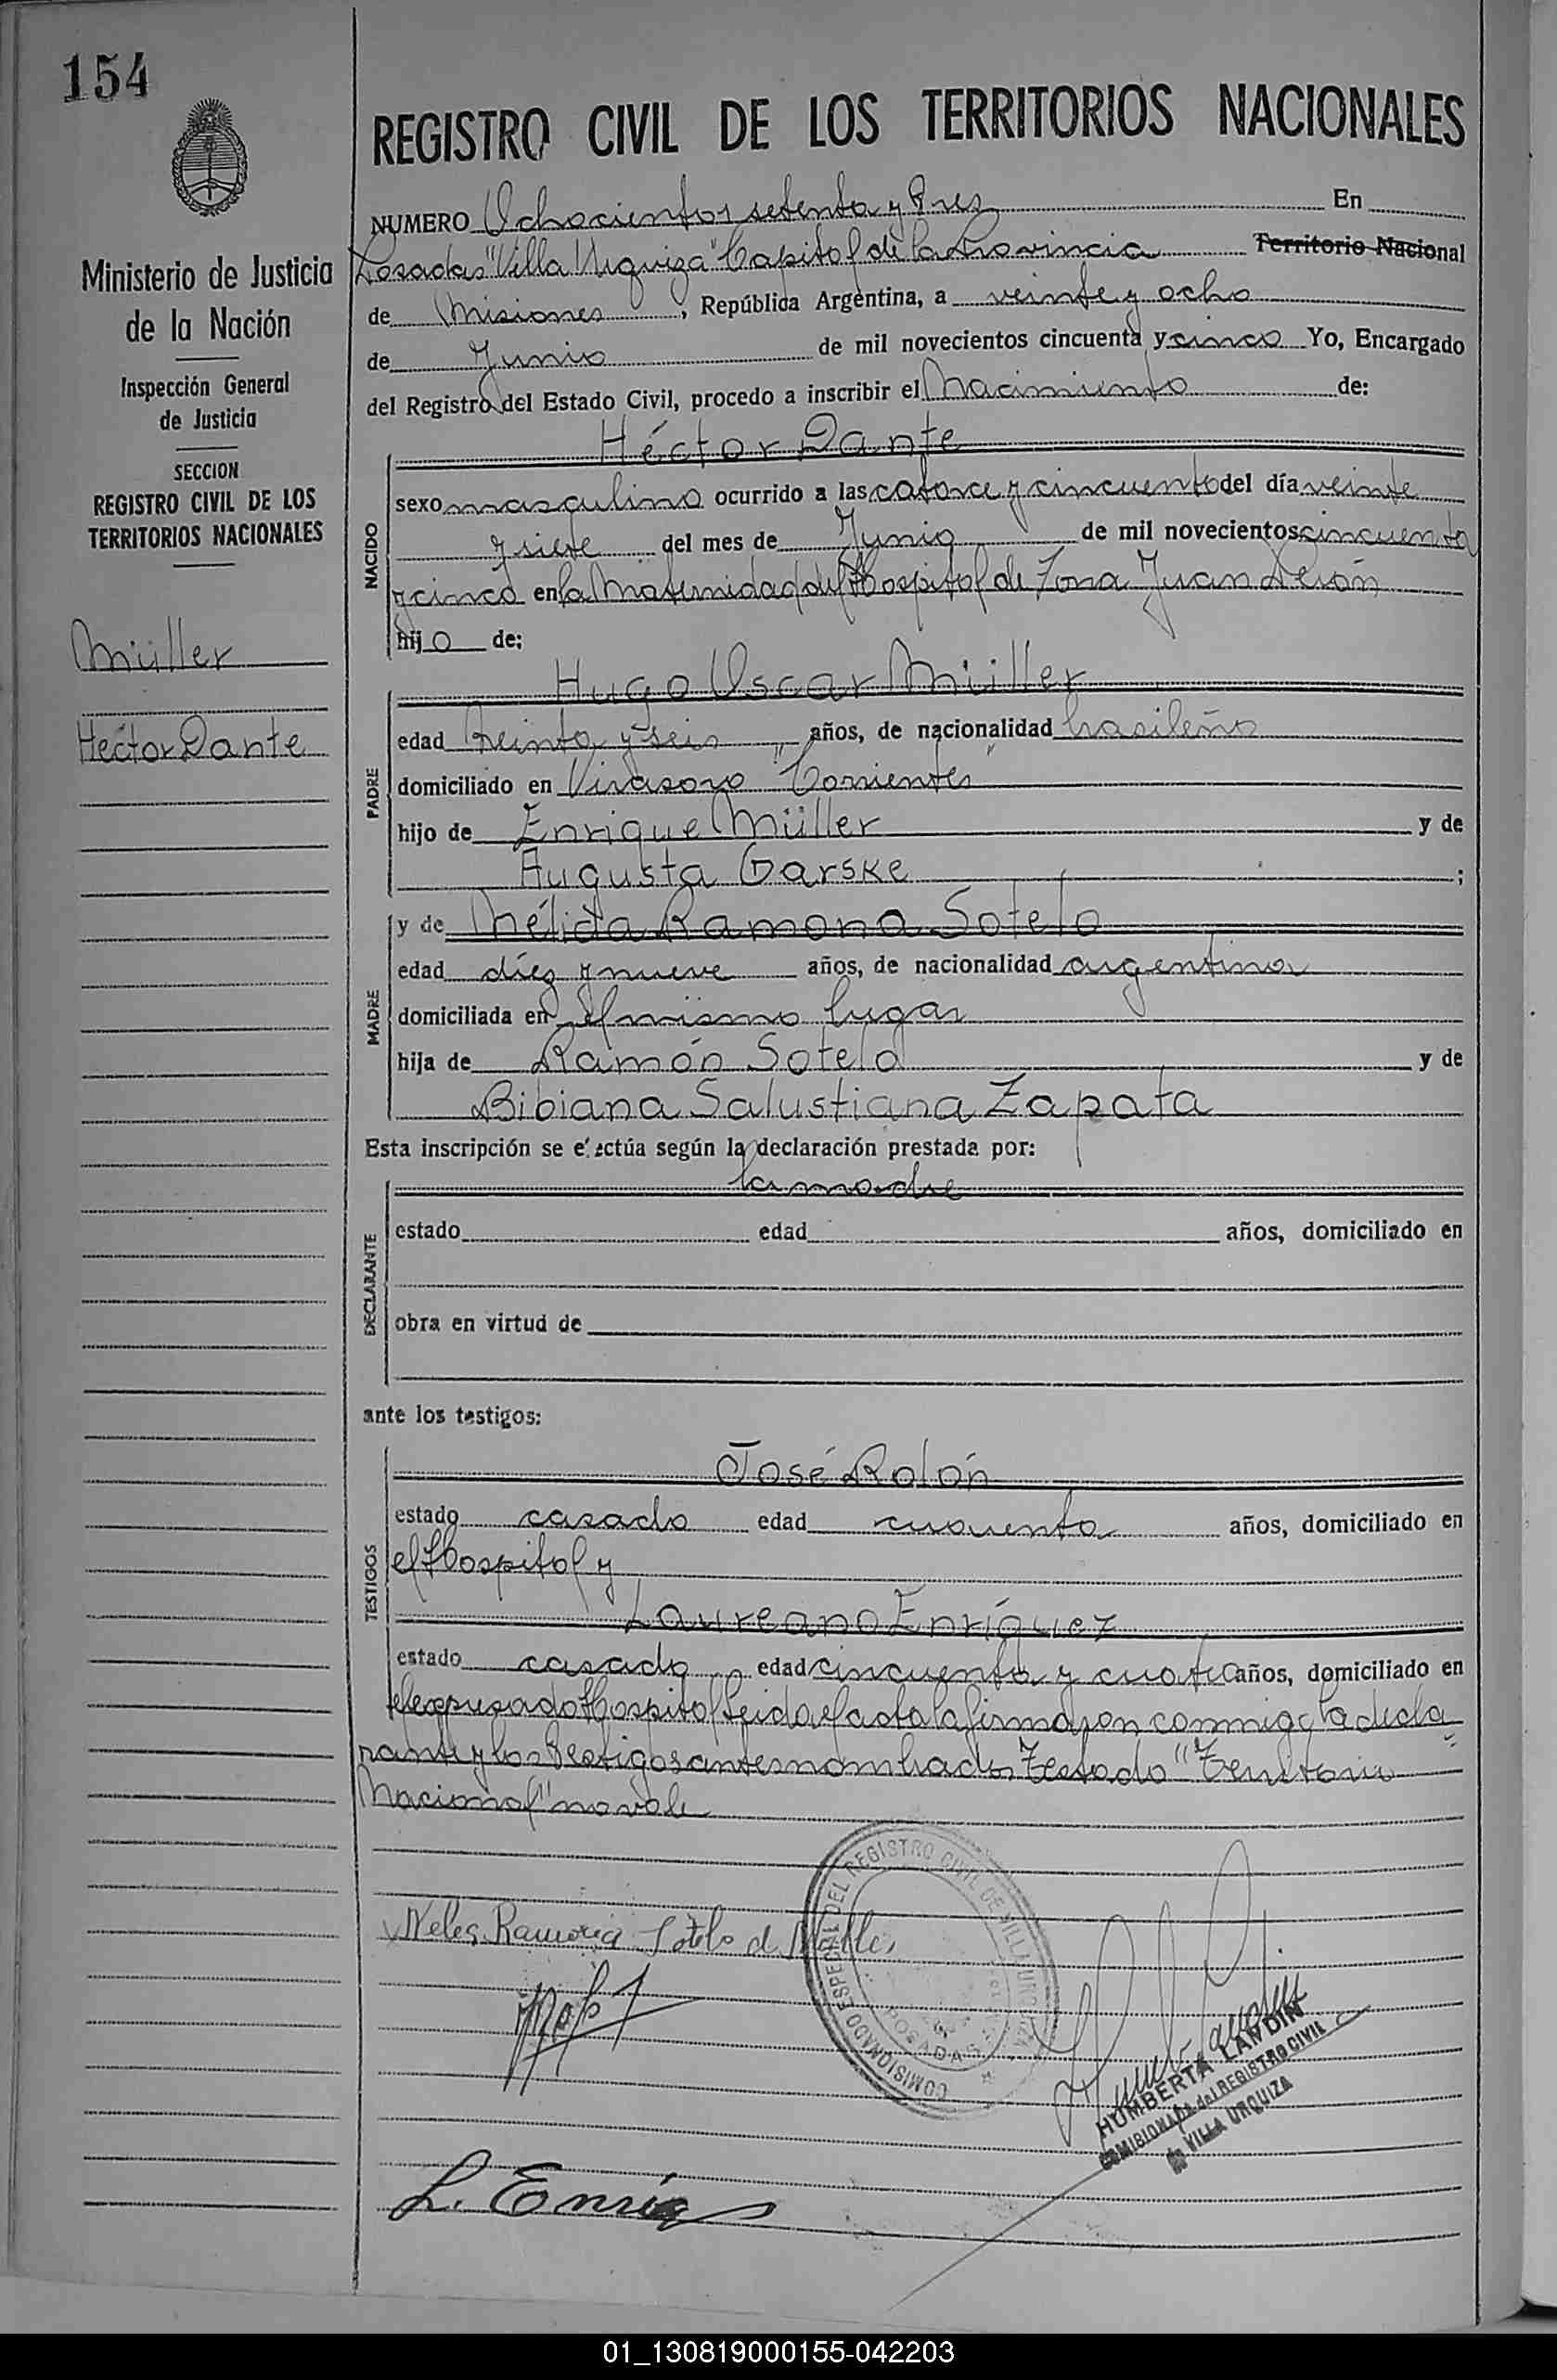 154
REGISTRO CIVIL DE LOS TERRITORIOS NACIONALES
Ministerio de Justicia
de la Nación
Inspección General
de Justicia
SECCION
REGISTRO CIVIL DE LOS
TERRITORIOS NACIONALES
Müller
Héctor Dante
NUMERO Ochocientos setenta y tres En
Posadas "Villa Urquiza" Capital de la Provincia Territorio Nacional
de Misiones, República Argentina, a veinte y ocho
de Junio de mil novecientos cincuenta y cinco Yo, Encargado
del Registro del Estado Civil, procedo a inscribir el Nacimiento de:
Héctor Dante
NACIDO
sexo masculino ocurrido a las catorce y cincuenta del día veinte
y siete del mes de Junio de mil novecientos cincuenta
y cinco en la Maternidad del Hospital de Zona Juan Perón
hijo de:
Hugo Oscar Müller
PADRE
edad treinta y seis años, de nacionalidad brasileño
domiciliado en Virasoro "Corrientes"
hijo de Enrique Müller y de
Augusta Garske ;
MADRE
y de Nélida Ramona Sotelo
edad diez y nueve años, de nacionalidad argentina
domiciliada en el mismo lugar
hija de Ramón Sotelo y de
Bibiana Salustiana Zapata
Esta inscripción se efectúa según la declaración prestada por:
la madre
DECLARANTE
estado edad años, domiciliado en
obra en virtud de
ante los testigos:
José Rolón
TESTIGOS
estado casado edad cuarenta años, domiciliado en
el Hospital y
Laureano Enríquez
estado casado edad cincuenta y cuatro años, domiciliado en
el expresado Hospital Leida el acta la firmaron conmigo la decla
rante y los testigos antes nombrados Testado "Territorio
Nacional" no vale
Ramona Sotelo de Müller
COMISIONADO ESPECIAL DEL REGISTRO CIVIL DE VILLA URQUIZA
POSADAS
HUMBERTA LANDIN
COMISIONADA del REGISTRO CIVIL
de VILLA URQUIZA
L. Enríq
01_130819000155-042203